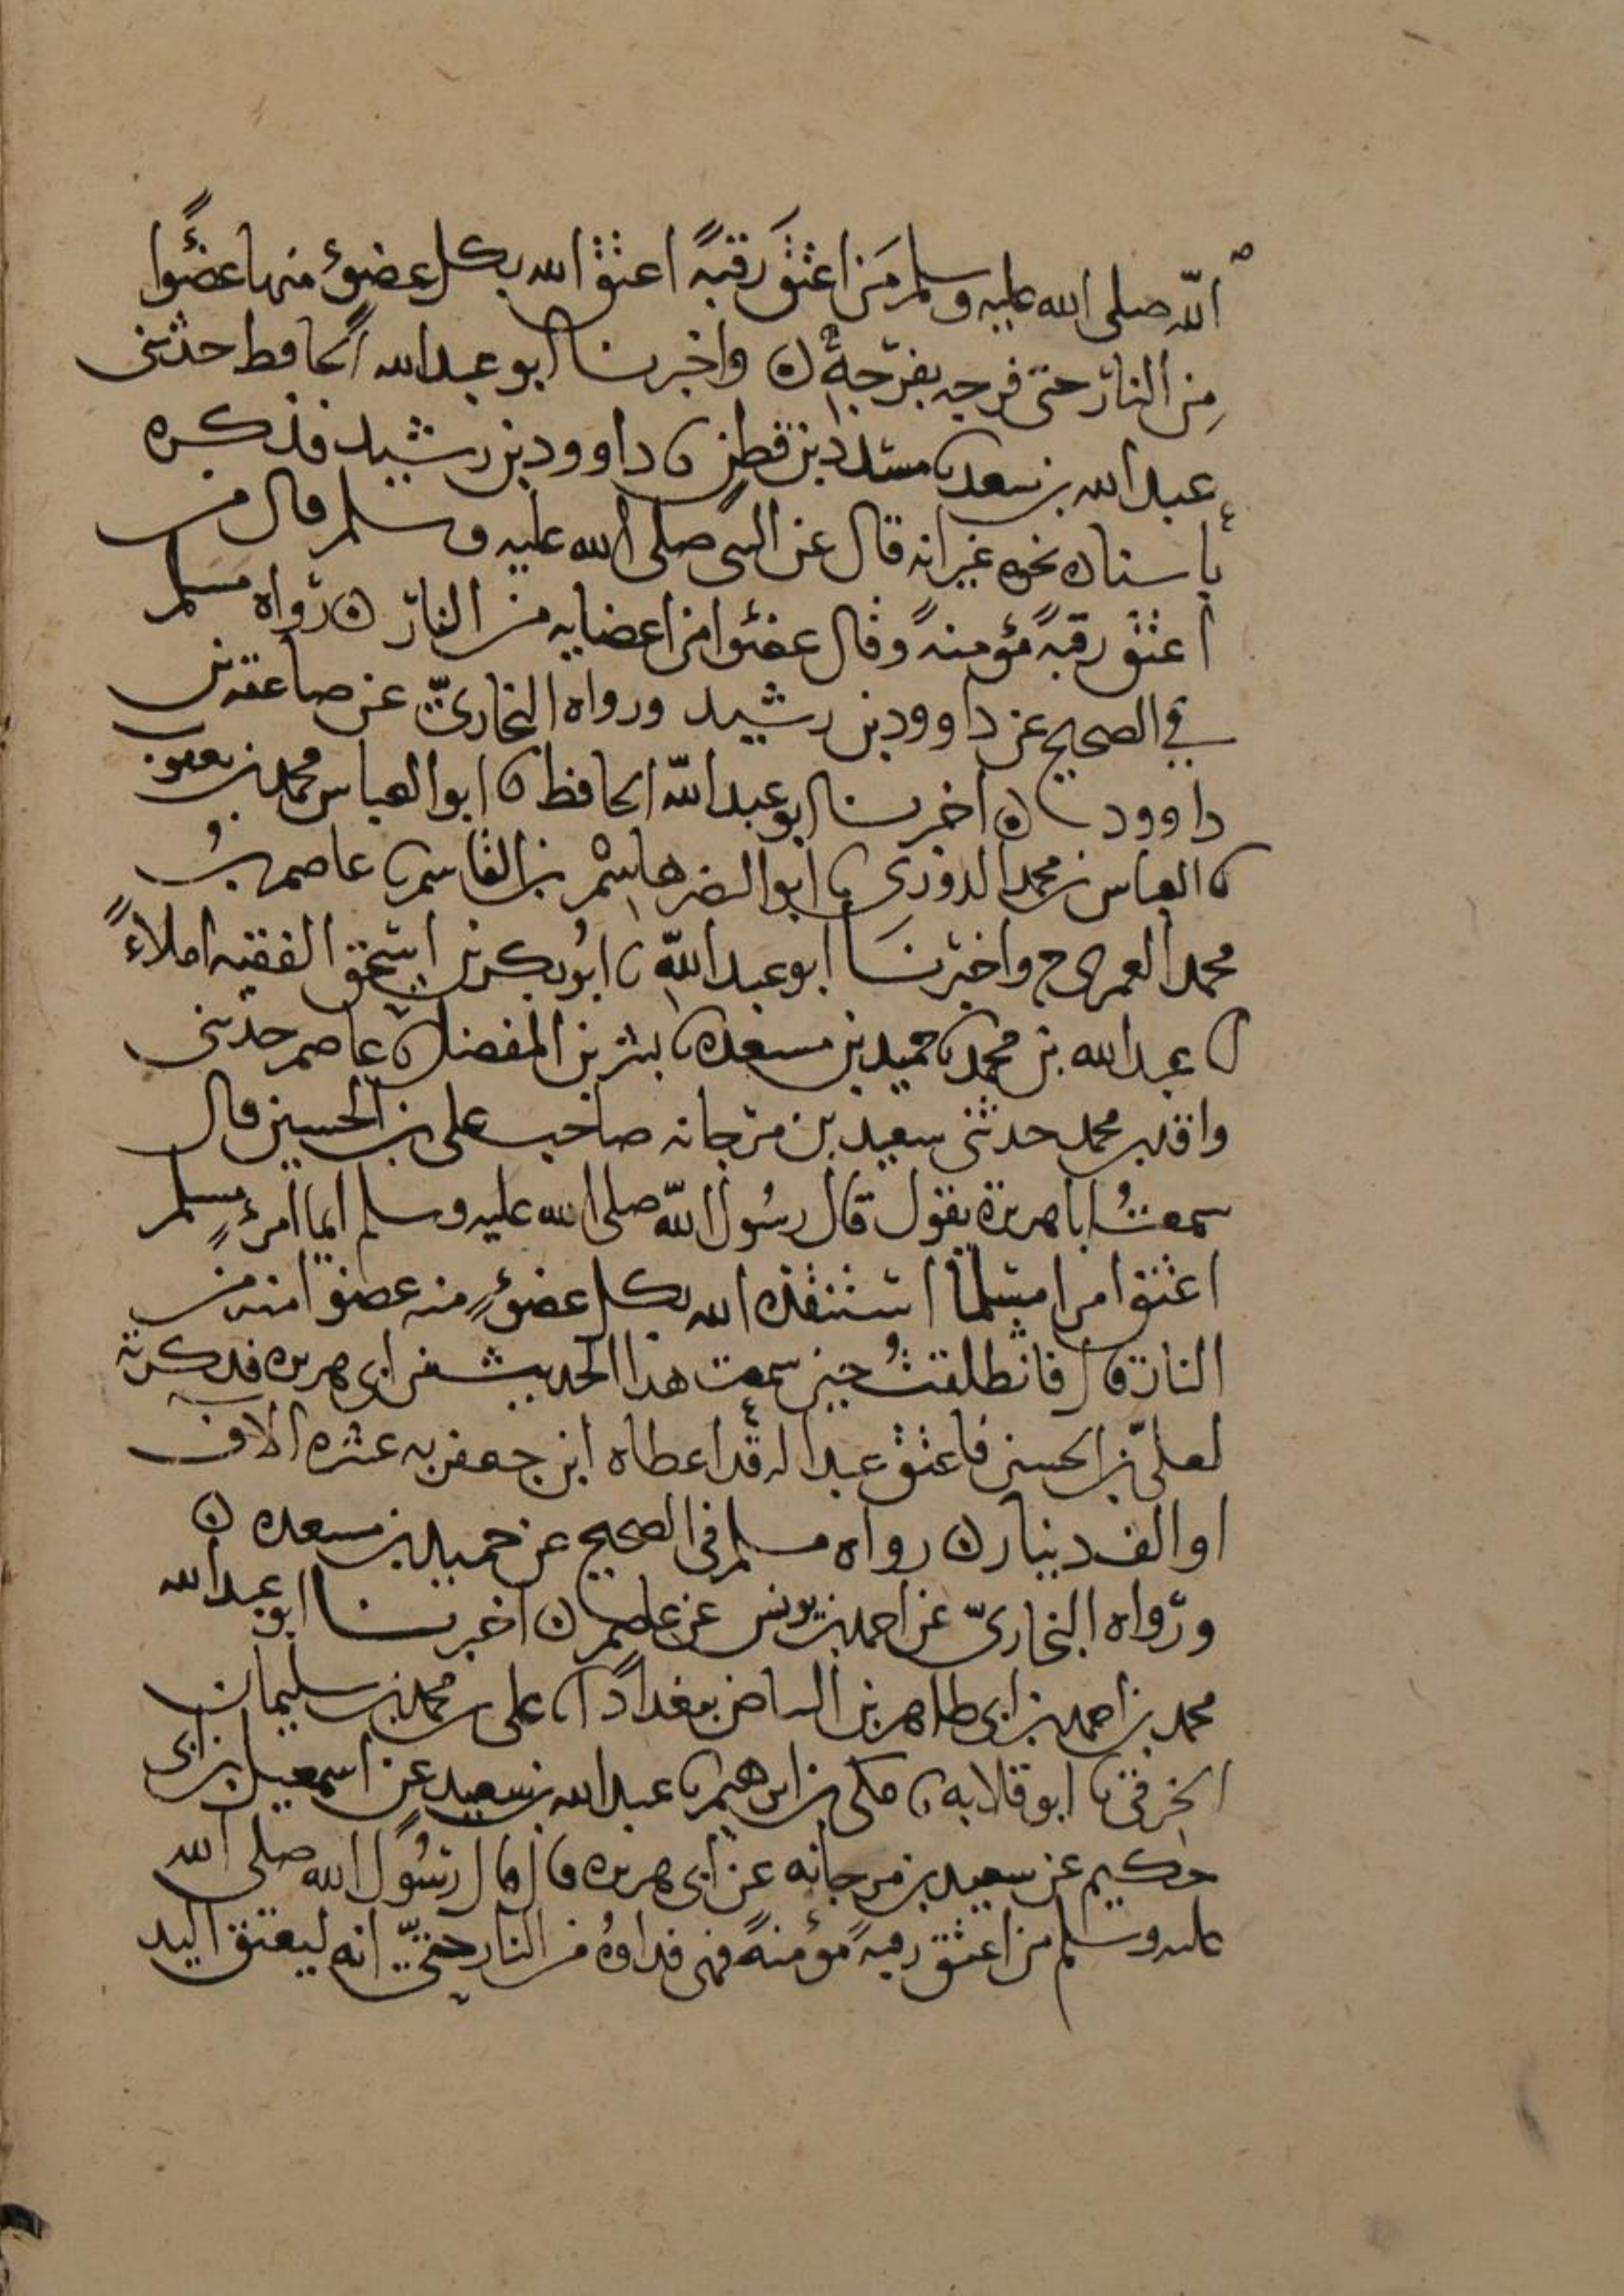 الله صلى الله عليه وسلم مَن اعتقَ رقبةً اعتق الله بكل عضوٍ منها عضوًا
مِن النار حتى فرجه بفرجه ن واخبرنا ابو عبدالله الحافظ حدثنى
عبد الله بن سعد ثنا مسدد بن قطن ثنا داوود بن رشيد فذكره
باسناده نحوه غير انه قال عن النبى صلى الله عليه وسلم قال من
اعتق رقبةً مؤمنةً وقال عضوا من اعضايه من النار ن رواه مسلم
في الصحيح عن داوود بن رشيد ورواه البخاريّ عن صاعقه بن
داوود ن اخبرنا ابو عبد الله الحافظ ثنا ابو العباس محمد بن يعقوب
ثنا العباس بن محمد الدوري ثنا ابو النضر هاشم بن القاسم ثنا عاصم بنُ
محمد العمرى ح واخبرنَا ابو عبد الله ثنا ابُو بكر بن اسحق الفقيه املاءً
ثنا عبد الله بن محمد ثنا حميد بن مسعده ثنا بشر بن المفضل ثنا عاصم حدثنى
واقد بن محمد حدثنى سعيد بن مرجانه صاحب على بن الحسين قال
سمعتُ ابا هريرة يقول قال رسُول الله صلى الله عليه وسلم ايما امرءٍ مسلم
اعتق امرا مسلمًا استنقذه الله بكل عضوٍ منه عضوا منه من
النار قال فانطلقتُ حين سمعت هذا الحديث من ابى هريره فذكرته
لعليّ بن الحسين فاعتق عبدا له قد اعطاه ابن جعفر به عشره الاف
او الف دينار ن رواه مسلم فى الصحيح عن حميد بن مسعده ن
ورواه البخاريّ عن احمد بن يونس عن عاصم ن اخبرنا ابو عبد الله
محمد بن احمد بن ابى طاهر بن البياض ببغداد انا على بن محمد بن سليمان
الخرقى ثنا ابو قلابه ثنا مكى بن ابرهيم ثنا عبد الله بن سعيد عن اسمعيل بن ابى
حكيم عن سعيد بن مرجانه عن ابى هريره قال قال رسُول الله صلى الله
عليه وسلم من اعتق رقبةً مؤمنةً فهى فداوهُ من النار حتىّ انه ليعتق اليد